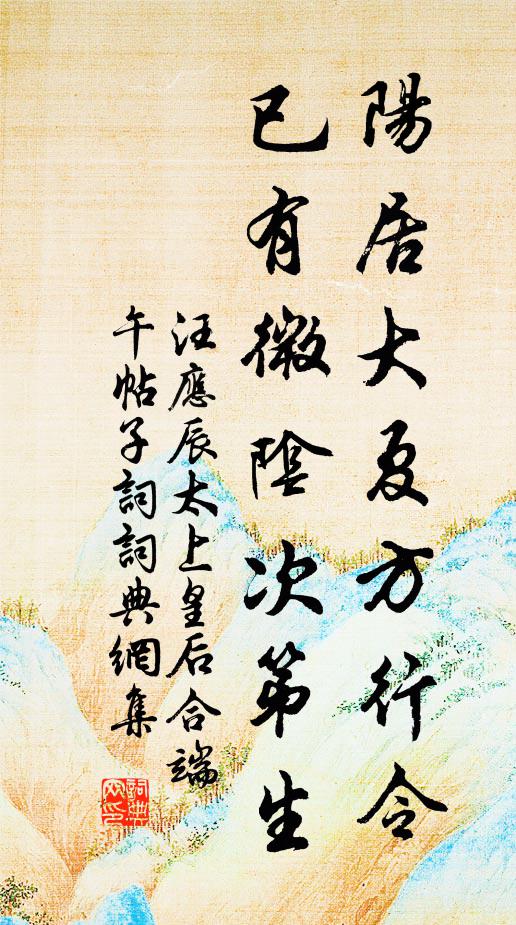 陽居大夏方行令
已有微陰次第生
汪應辰太上皇后合端
午帖子詞詞典網集
詞典
网印